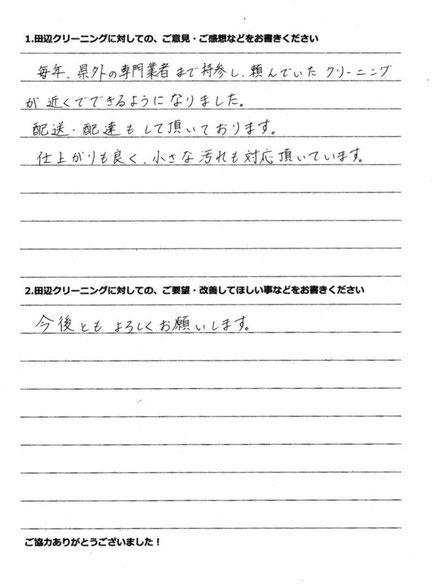 1.田辺クリーニングに対しての、ご意見・ご感想などをお書きください
毎年、県外の専門業者まで持参し、頼んでいた クリーニング
が 近くでできるように なりました。
配送・配達も して頂いております。
仕上がりも良く、小さな汚れも対応頂いています。
2.田辺クリーニングに対しての、ご要望・改善してほしい事などをお書きください
今後とも よろしくお願いします。
ご協力ありがとうございました！